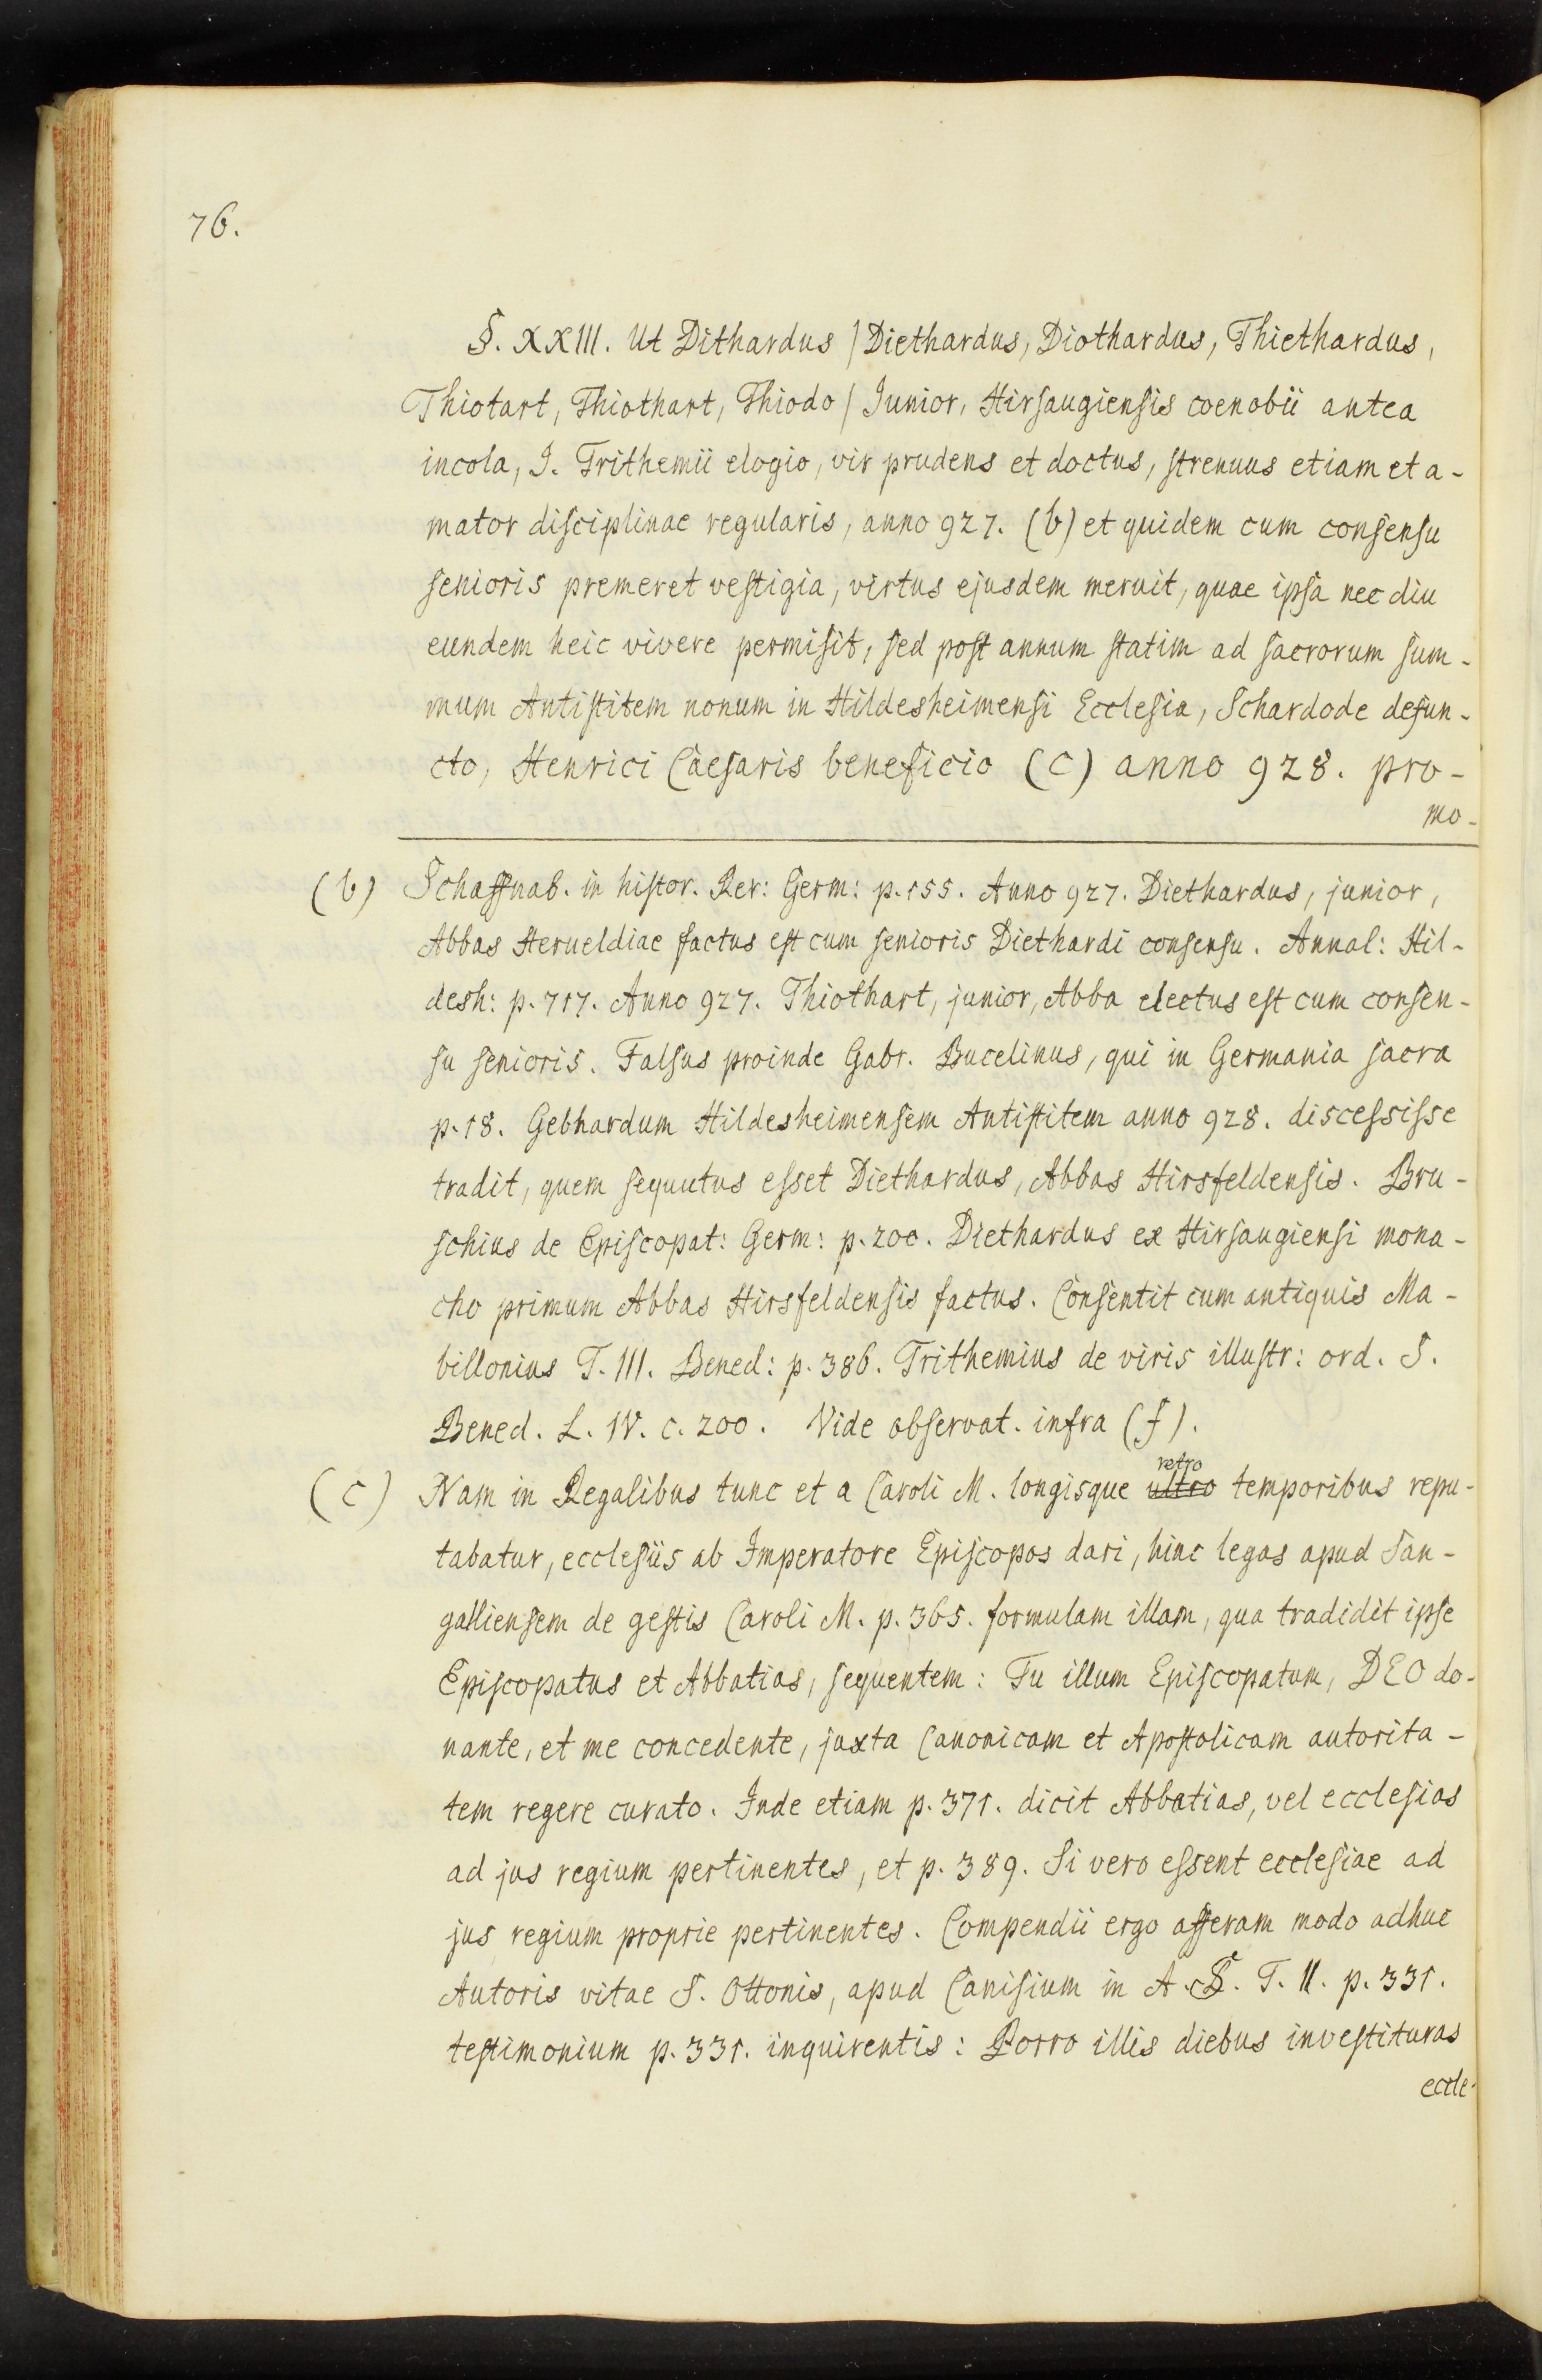 76.
§. XXIII. Ut Dithardus /Diethardus, Diothardus, Thiethardus,
Thiotart, Thiothart, Thiodo / Junior, Hirsaugiensis coenobii antea
incola, J. Trithemii elogio, vir prudens et doctus, strenuus etiam et a-
mator disciplinae regularis, anno 927. (b) et quidem cum consensu
senioris premeret vestigia, virtus ejusdem meruit, quae ipsa nec diu
eundem heic vivere permisit, sed post annum statim ad sacrorum sum-
mum Antistitem nonum in Hildesheimensi Ecclesia, Schardode defun-
cto, Henrici Caesaris beneficio (c) anno 928. pro-
mo-
(b) Schaffnab. in histor. Rer: Germ: p. 155. Anno 927. Diethardus, junior,
Abbas Herueldiae factus est cum senioris Diethardi consensu. Annal: Hil-
desh: p. 717. Anno 927. Thiothart, junior, Abba electus est cum consen-
su senioris. Falsus proinde Gabr. Bucelinus, qui in Germania sacra
p. 18. Gebhardum Hildesheimensem Antistitem anno 928. discessisse
tradit, quem sequutus esset Diethardus, Abbas Hirsfeldensis. Bru-
schius de Episcopat: Germ: p. 200. Diethardus ex Hirsaugiensi mona-
cho primum Abbas Hirsfeldensis factus. Consentit cum antiquis Ma-
billonius T. III. Bened: p. 386. Trithemius de viris illustr: ord. S.
Bened. L. IV. c. 200. Vide observat. infra (f).
retro
(c) Nam in Regalibus tunc et a Caroli M. longisque ultro temporibus repu-
tabatur, ecclesiis ab Imperatore Episcopos dari, hinc legas apud San-
galliensem de gestis Caroli M. p. 365. formulam illam, qua tradidit ipse
Episcopatus et Abbatias, sequentem: Tu illum Episcopatum, DEO do-
nante, et me concedente, juxta Canonicam et Apostolicam autorita-
tem regere curato. Inde etiam p. 371. dicit Abbatias, vel ecclesias
ad jus regium pertinentes, et p. 389. Si vero essent ecclesiae ad
jus regium proprie pertinentes. Compendii ergo afferam modo adhuc
Autoris vitae S. Ottonis, apud Canisium in A. S. T. II. p. 331.
testimonium p. 331. inquirentis: Porro illis diebus investituras
eccle-